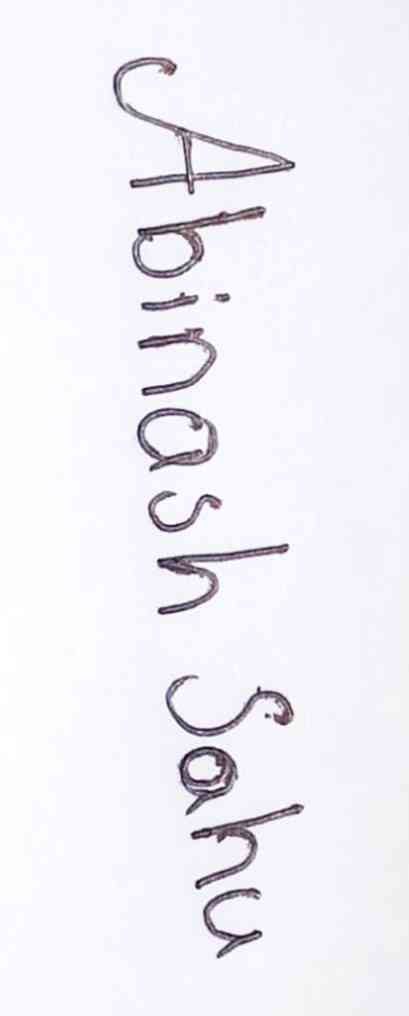 Abinash Sahu